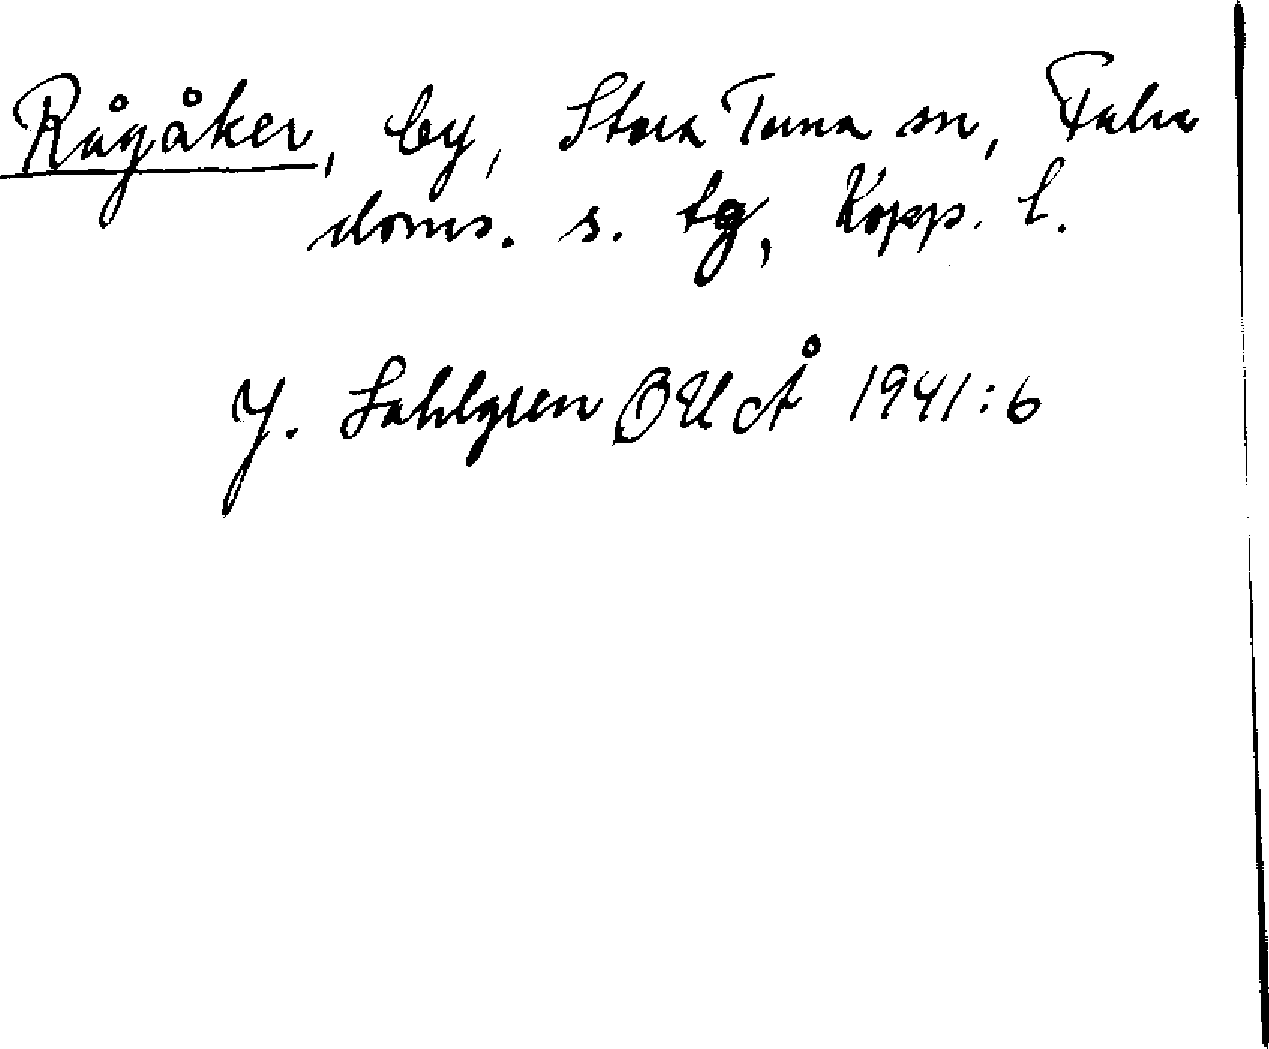 Rågåker, by, Stora Tuna sn, Falu
doms. s. tg, Kopp. l.
J. Sahlgren OUÅ 1941:6